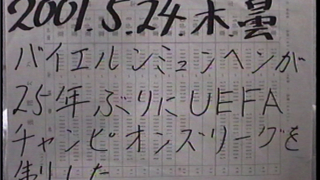 2001.5.24.木.曇
バイエルンミュンヘンが
25年ぶりにUEFA
チャンピオンズリーグを
制した